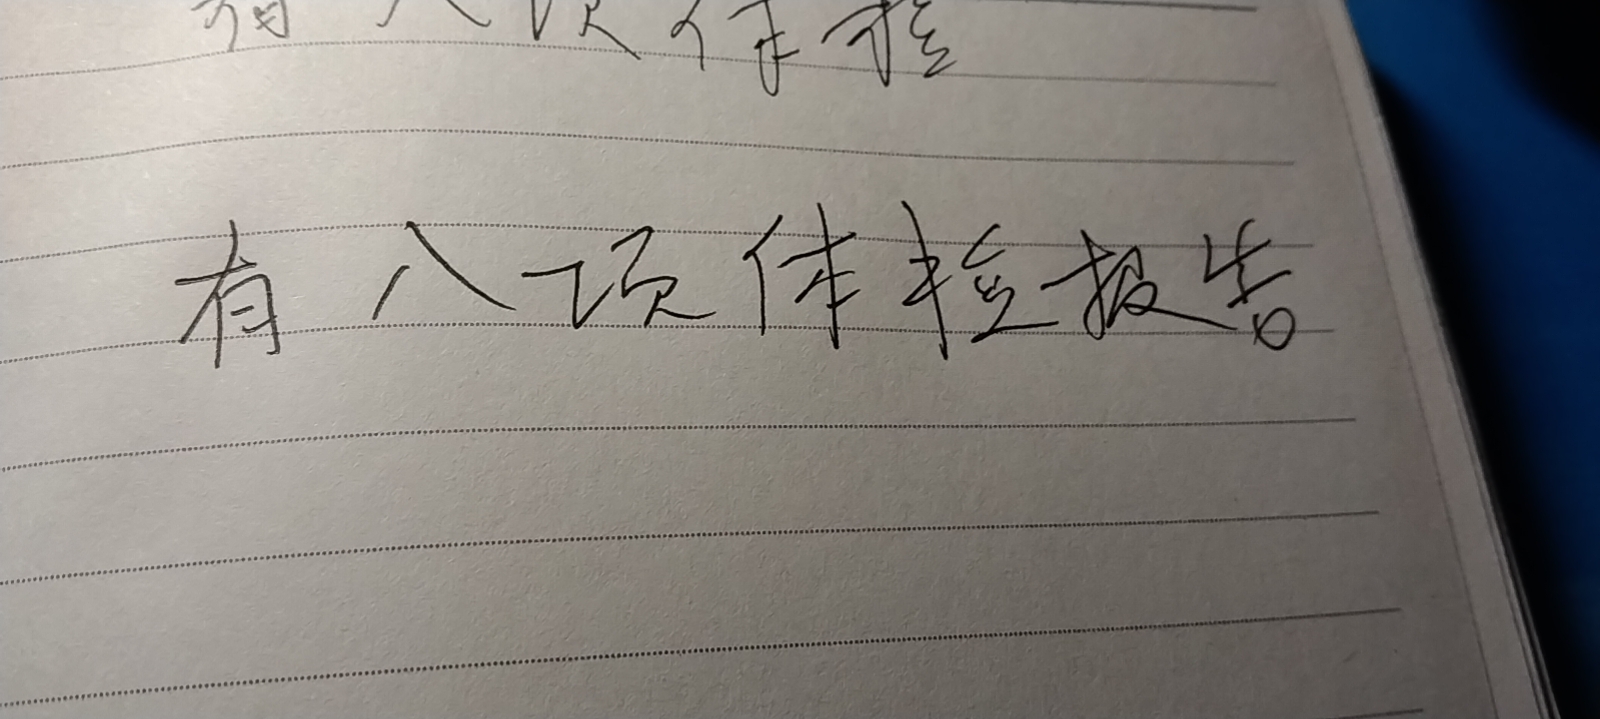 有八项体检
有八项体检报告